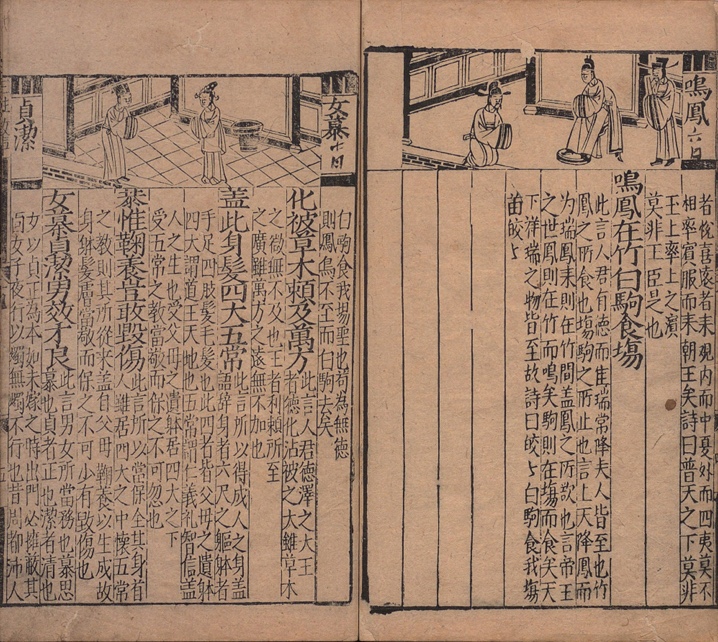 鳴鳳六日
者悅喜遠者耒覌内而中夏外而四夷莫不
相率賓服而耒朝王矣詩曰普天之下莫非
王上率上之濵
莫非王臣是也
鳴鳳在竹白駒食塲
此言人君有德而隹瑞常降夫人皆至也竹
鳳之所食也塲駒之所止也言上天降鳳而
为瑞鳳耒則在竹間盖鳳之所欲也言帝王
之世鳳則在竹而鳴矣駒則在塲而食矣天
下祥瑞之物皆至故詩曰皎〻白駒食我塲
苗皎〻
女慕十日
白駒食我塲聖也苟為無德
則鳳鳥不至而白駒去矣
化被草木頼及萬方
此言人君德澤之大王
者德化沾被之大雖草木
之微無不及也王者利頼所至
之廣雖萬方之遠無不加也
盖此身髮四大五常
此言所以得成人之身盖
語辞身者六尺之軀躰者
手足四肢髮毛髮也此四者皆父母之遺躰
四大謂道王天地也五常謂仁義礼智信盖
人之生也受父母之遺躰居四大之下
受五常之教當敬而保之不可忽也
恭惟鞠養豈敢毀傷
此言所以當保全其身首
人雖居四大之中懷五常
之教則其所從来盖自父母鞠養以生成故
身躰髮膚當敬而保之不可少有毀傷也
女慕貞潔男效才良
此言男女所當務也慕思
慕也貞者正也潔者清也
女以貞正為本如未嫁之時出門必擁蔽其
面女子夜行以燭無燭不行也昔周都沛人
貞潔